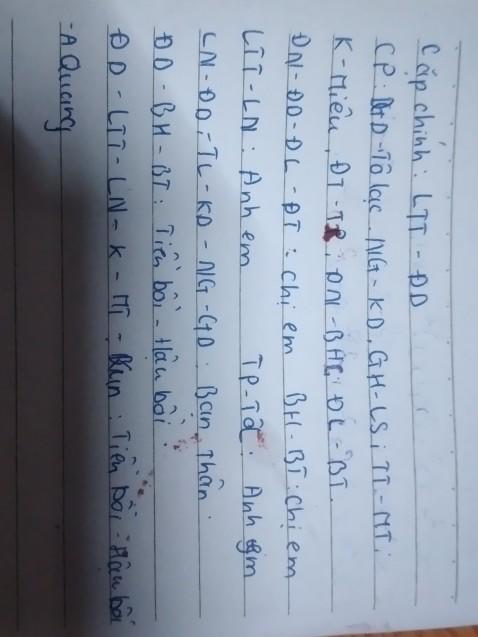 Cặp chính: LTT - ĐD
CP: -Tô lạc, NG-KD, GH-LS, TT-MT,
K-Miêu, ĐT-TP, ĐN-BH; ĐL-BT.
ĐN-ĐD-ĐL-ĐT: chị em BH-BT: chị em
LTT-LN: Anh em TP-TD: Anh em
LN-ĐD-TL-KD-NG-GD: Bạn thân.
ĐD-BH-BT: Tiền bối-Hậu bối.
ĐD-LTT-LN-K-MT- : Tiền bối-Hậu bối
-A Quang